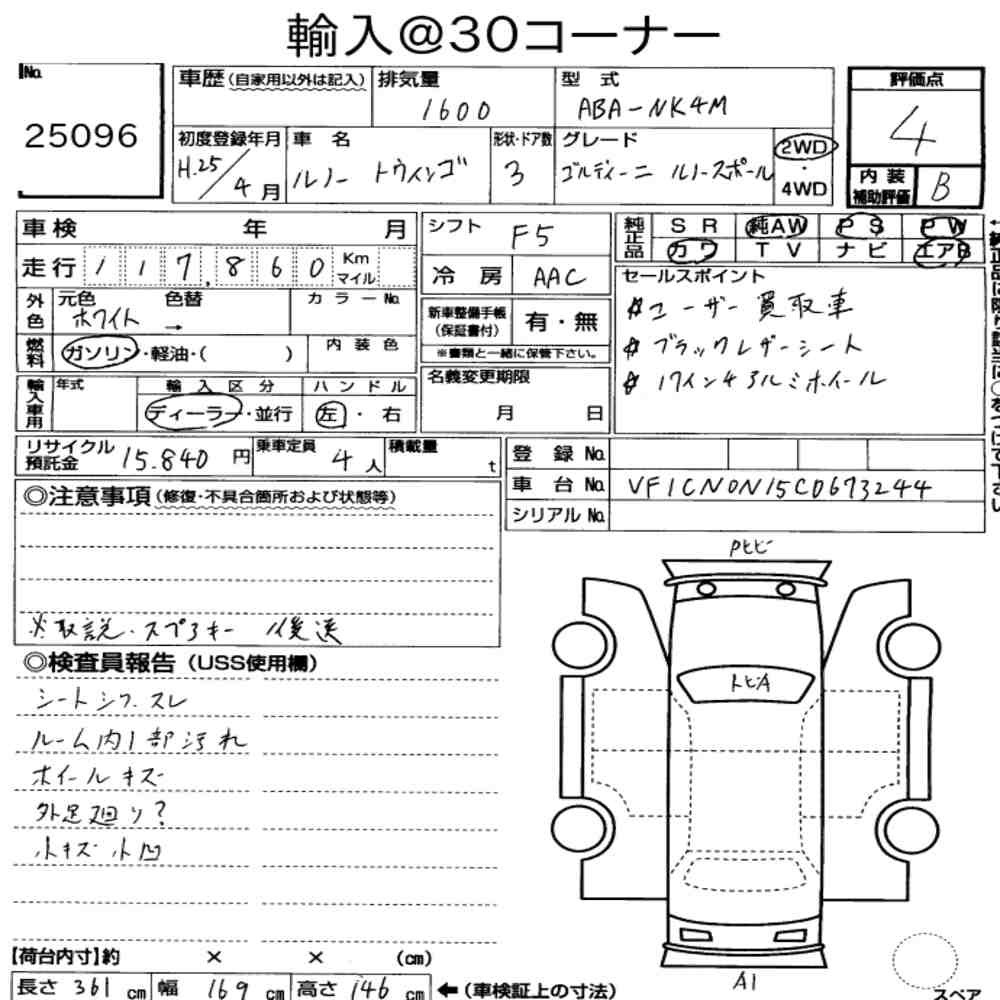 輸入@30コーナー
No. 25096
車歴(自家用以外は記入)
排気量 1600
型式 ABA-NK4M
評価点 4
初度登録年月 H.25/4月
車名 ルノー トウィンゴ
形状・ドア数 3
グレード ゴルディーニ ルノースポール
2WD・4WD
内装補助評価 B
車検 年 月
シフト F5
純正品 SR 純AW PS PW
カワ TV ナビ エアB
走行 117,860 Km マイル
冷房 AAC
セールスポイント
外色 元色 ホワイト → 色替
カラーNo.
新車整備手帳(保証書付) 有・無
※書類と一緒に保管下さい。
#ユーザー買取車
#ブラックレザーシート
#17インチアルミホイール
燃料 ガソリン・軽油・( )
内装色
輸入車用 年式
輸入区分 ディーラー・並行
ハンドル 左・右
名義変更期限 月 日
リサイクル預託金 15.840円
乗車定員 4人
積載量 t
登録No.
車台No. VF1CN0N15C0673244
シリアルNo.
◎注意事項(修復・不具合箇所および状態等)
※取説・スペアキー 後送
◎検査員報告(USS使用欄)
シートシワ スレ
ルーム内1部汚れ
ホイールキズ
外足廻り?
小キズ小凹
Pヒビ
トビA
A1
【荷台内寸】約 × × (cm)
長さ 361cm 幅 169cm 高さ 146cm ←(車検証上の寸法)
スペア